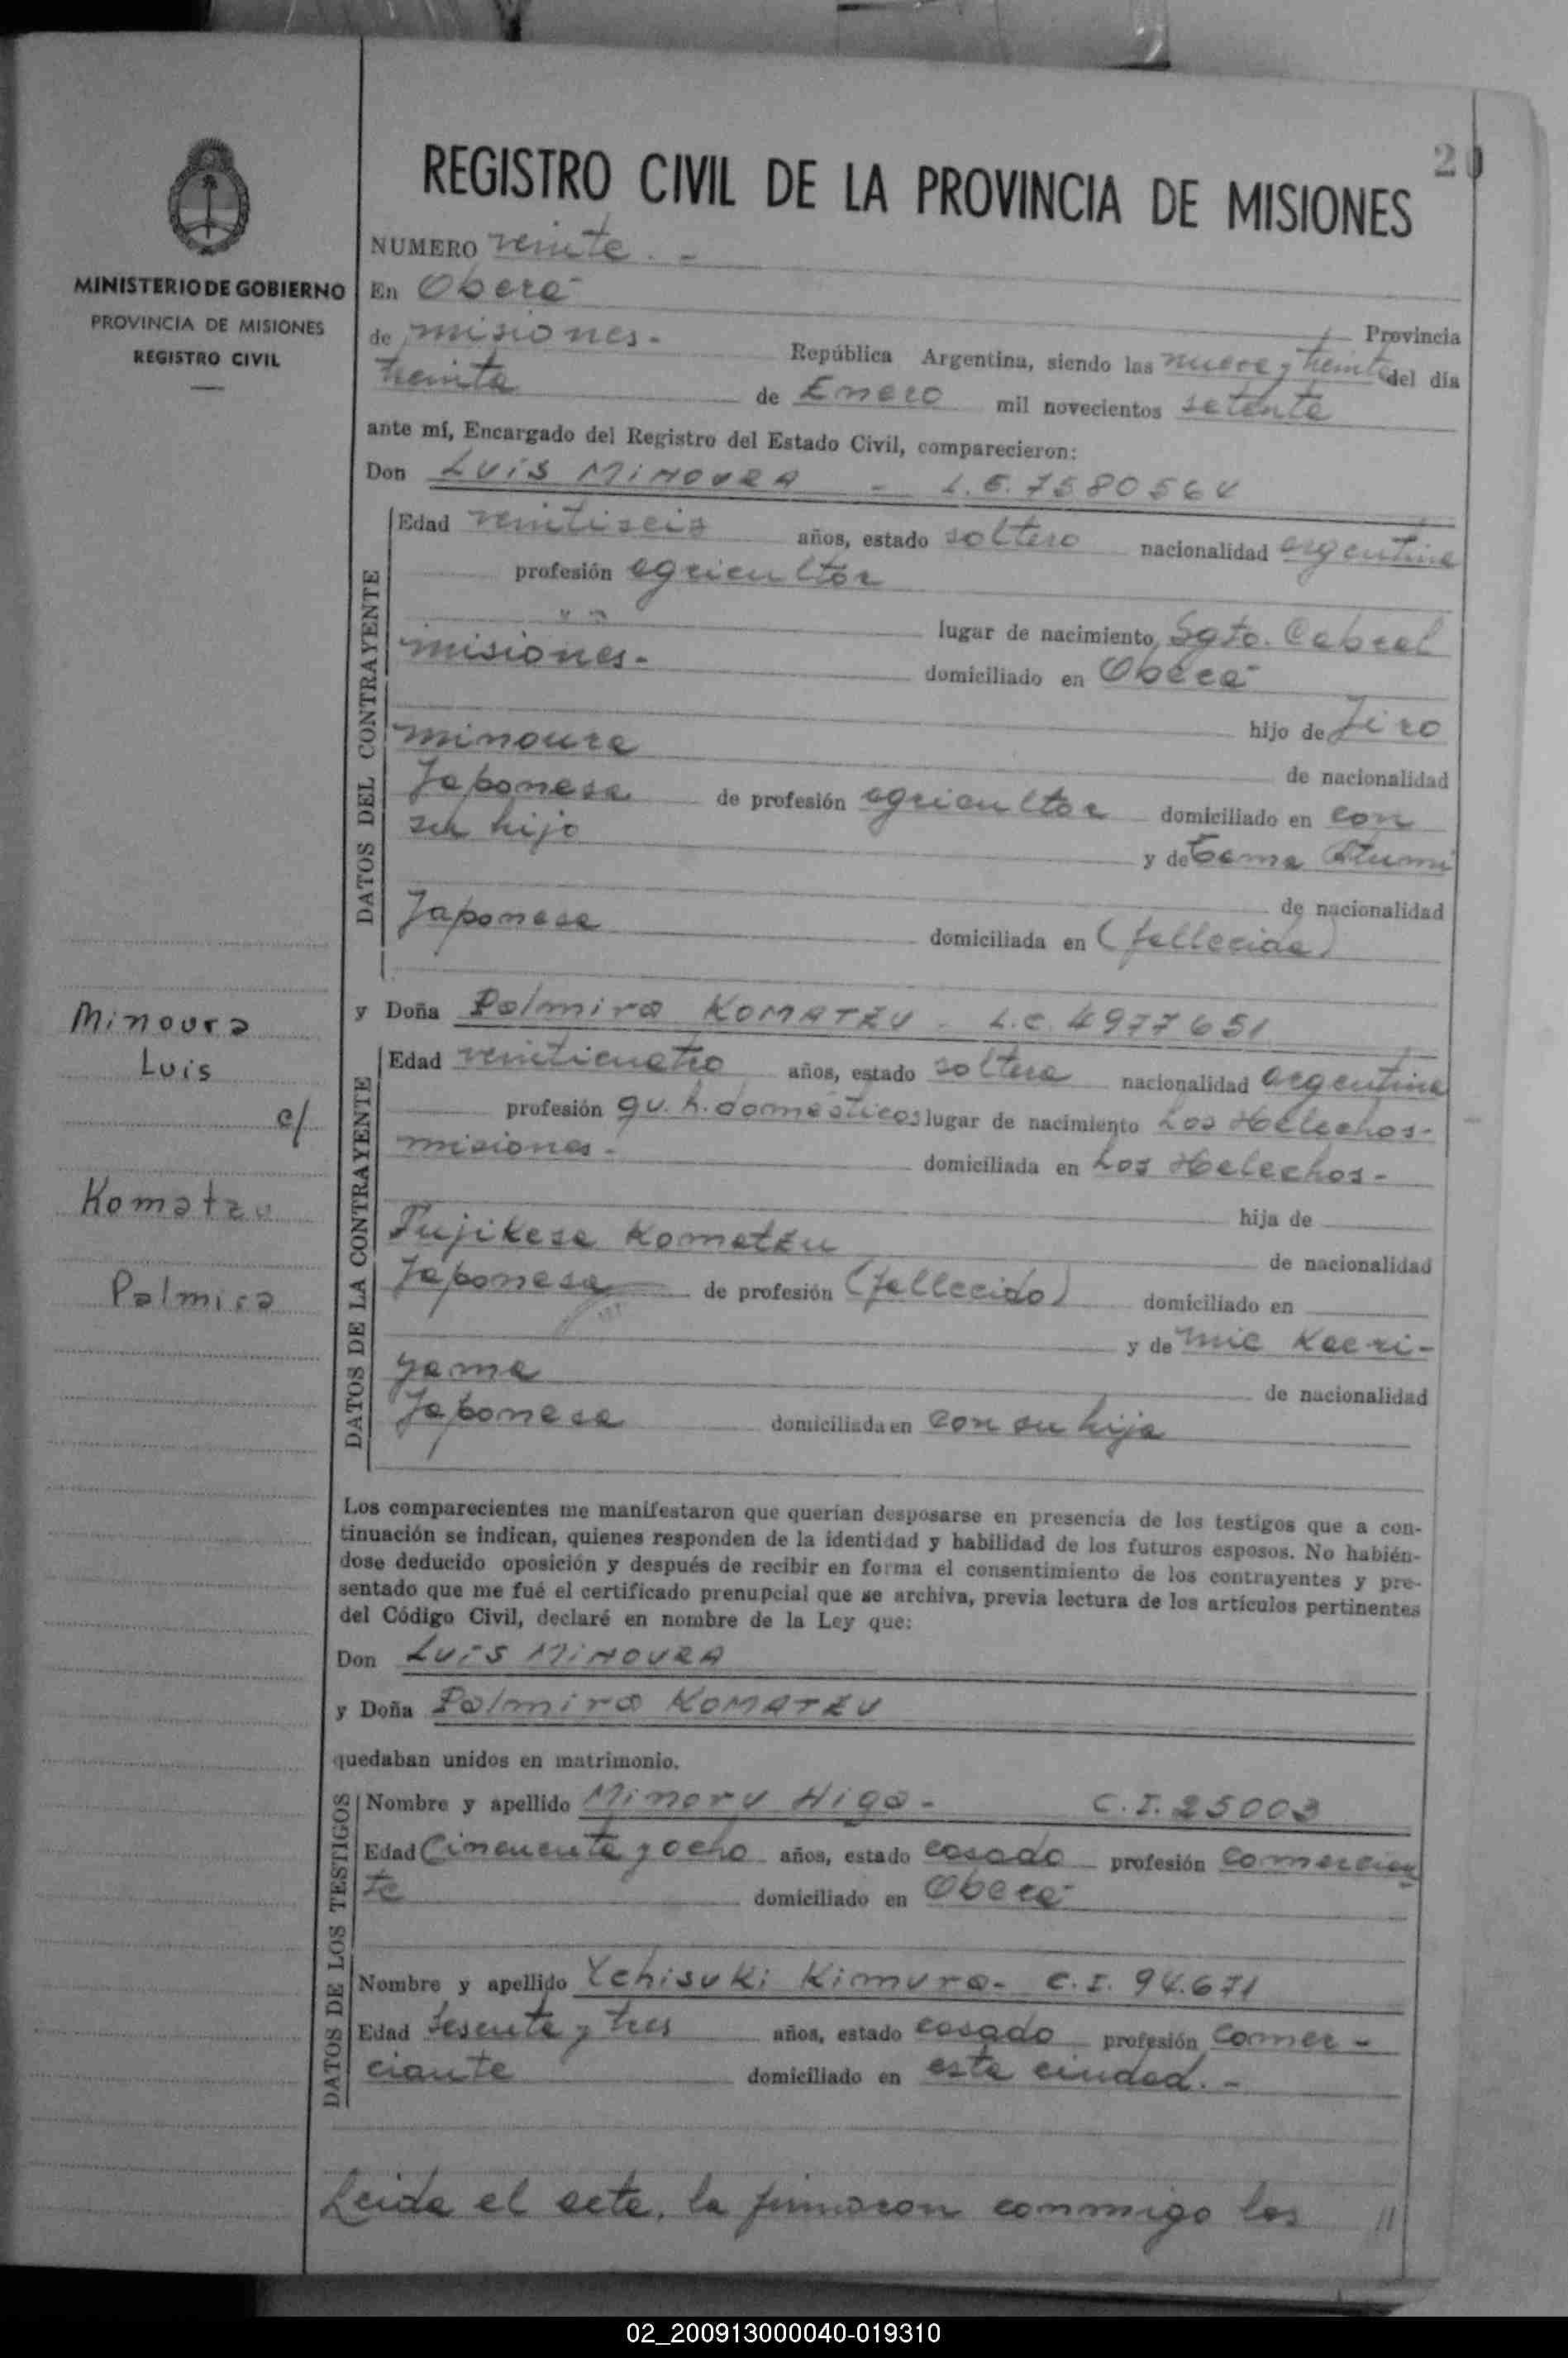 20
REGISTRO CIVIL DE LA PROVINCIA DE MISIONES
MINISTERIO DE GOBIERNO
PROVINCIA DE MISIONES
REGISTRO CIVIL
NUMERO veinte. -
En Oberá
Provincia
de misiones. - República Argentina, siendo las nueve y treinta del día
treinta de Enero mil novecientos setenta
ante mí, Encargado del Registro del Estado Civil, comparecieron:
Don LUIS MINOURA - L.E. 7580564
DATOS DEL CONTRAYENTE
Edad veintiseis años, estado soltero nacionalidad argentina
profesión agricultor
lugar de nacimiento Sgto. Cabral
misiones. - domiciliado en Oberá
hijo de Jiro
minoura de nacionalidad
Japonesa de profesión agricultor domiciliado en con
su hijo y de Tama
Japonesa de nacionalidad
domiciliada en (fallecida)
Minoura
Luis
c/
Komatzu
Palmira
y Doña Palmira KOMATZU - L.C. 4977651
DATOS DE LA CONTRAYENTE
Edad veinticuatro años, estado soltera nacionalidad argentina
profesión qu. h. domésticos lugar de nacimiento Los Helechos-
misiones - domiciliada en Los Helechos -
hija de
Fujikesa Komatzu de nacionalidad
Japonesa de profesión (fallecido) domiciliado en
y de Mie Kaeri-
yama de nacionalidad
Japonesa domiciliada en con su hija
Los comparecientes me manifestaron que querían desposarse en presencia de los testigos que a con-
tinuación se indican, quienes responden de la identidad y habilidad de los futuros esposos. No habién-
dose deducido oposición y después de recibir en forma el consentimiento de los contrayentes y pre-
sentado que me fué el certificado prenupcial que se archiva, previa lectura de los artículos pertinentes
del Código Civil, declaré en nombre de la Ley que:
Don LUIS MINOURA
y Doña Palmira KOMATZU
quedaban unidos en matrimonio.
DATOS DE LOS TESTIGOS
Nombre y apellido Minoru Higa - C.I. 25003
Edad Cincuenta y ocho años, estado casado profesión comercian
te domiciliado en Oberá
Nombre y apellido Ychisuki Kimura - C.I. 94.671
Edad Sesenta y tres años, estado casado profesión Comer -
ciante domiciliado en esta ciudad. -
Leida el acta, la firmaron conmigo los //
02_200913000040-019310